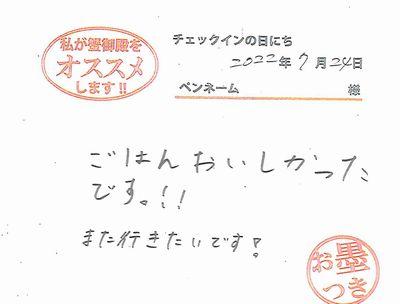 私が蟹御殿を
オススメ
します!!
チェックインの日にち
2022年7月24日
ペンネーム 様
ごはんおいしかった
です。!!
また行きたいです!
お墨
つき